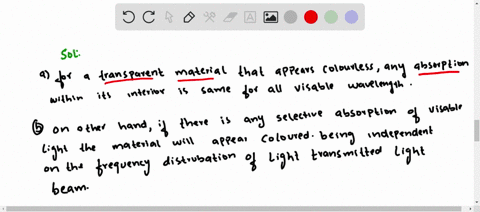 Sol:
a) for a transparent material that appears colourless, any absorption
within its interior is same for all visable wavelength.
(b) on other hand, if there is any selective absorption of visable
light the material will appear coloured. being independent
on the frequency distrubation of light transmitted light
beam.